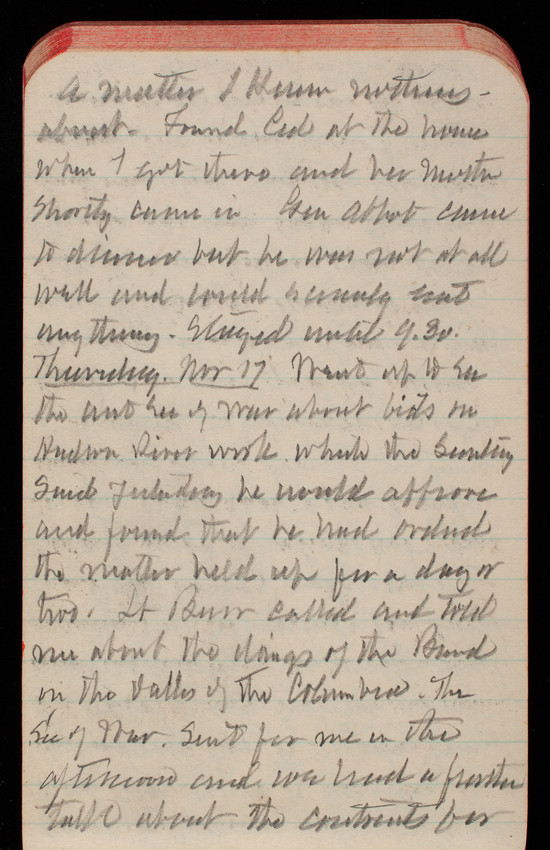 A matter I know nothing
about. Found Ced at the house
when I got there and her Mother
Shortly came in Gen Abbot came
to dinner but he was not at all
well and could scarcely eat
anything. Stayed until 9.30.
Thursday. Nov 17 Went up to see
the Sec of War about bids on
Hudson River work which the Secretary
said yesterday he would approve
and found that he had ordered
the matter held up for a day or
two. Lt Burr called and told
me about the doings of the Board
on the Dalles of the Columbia. The
Sec of War. Sent for me in the
afternoon and we had a further
talk about the contracts for